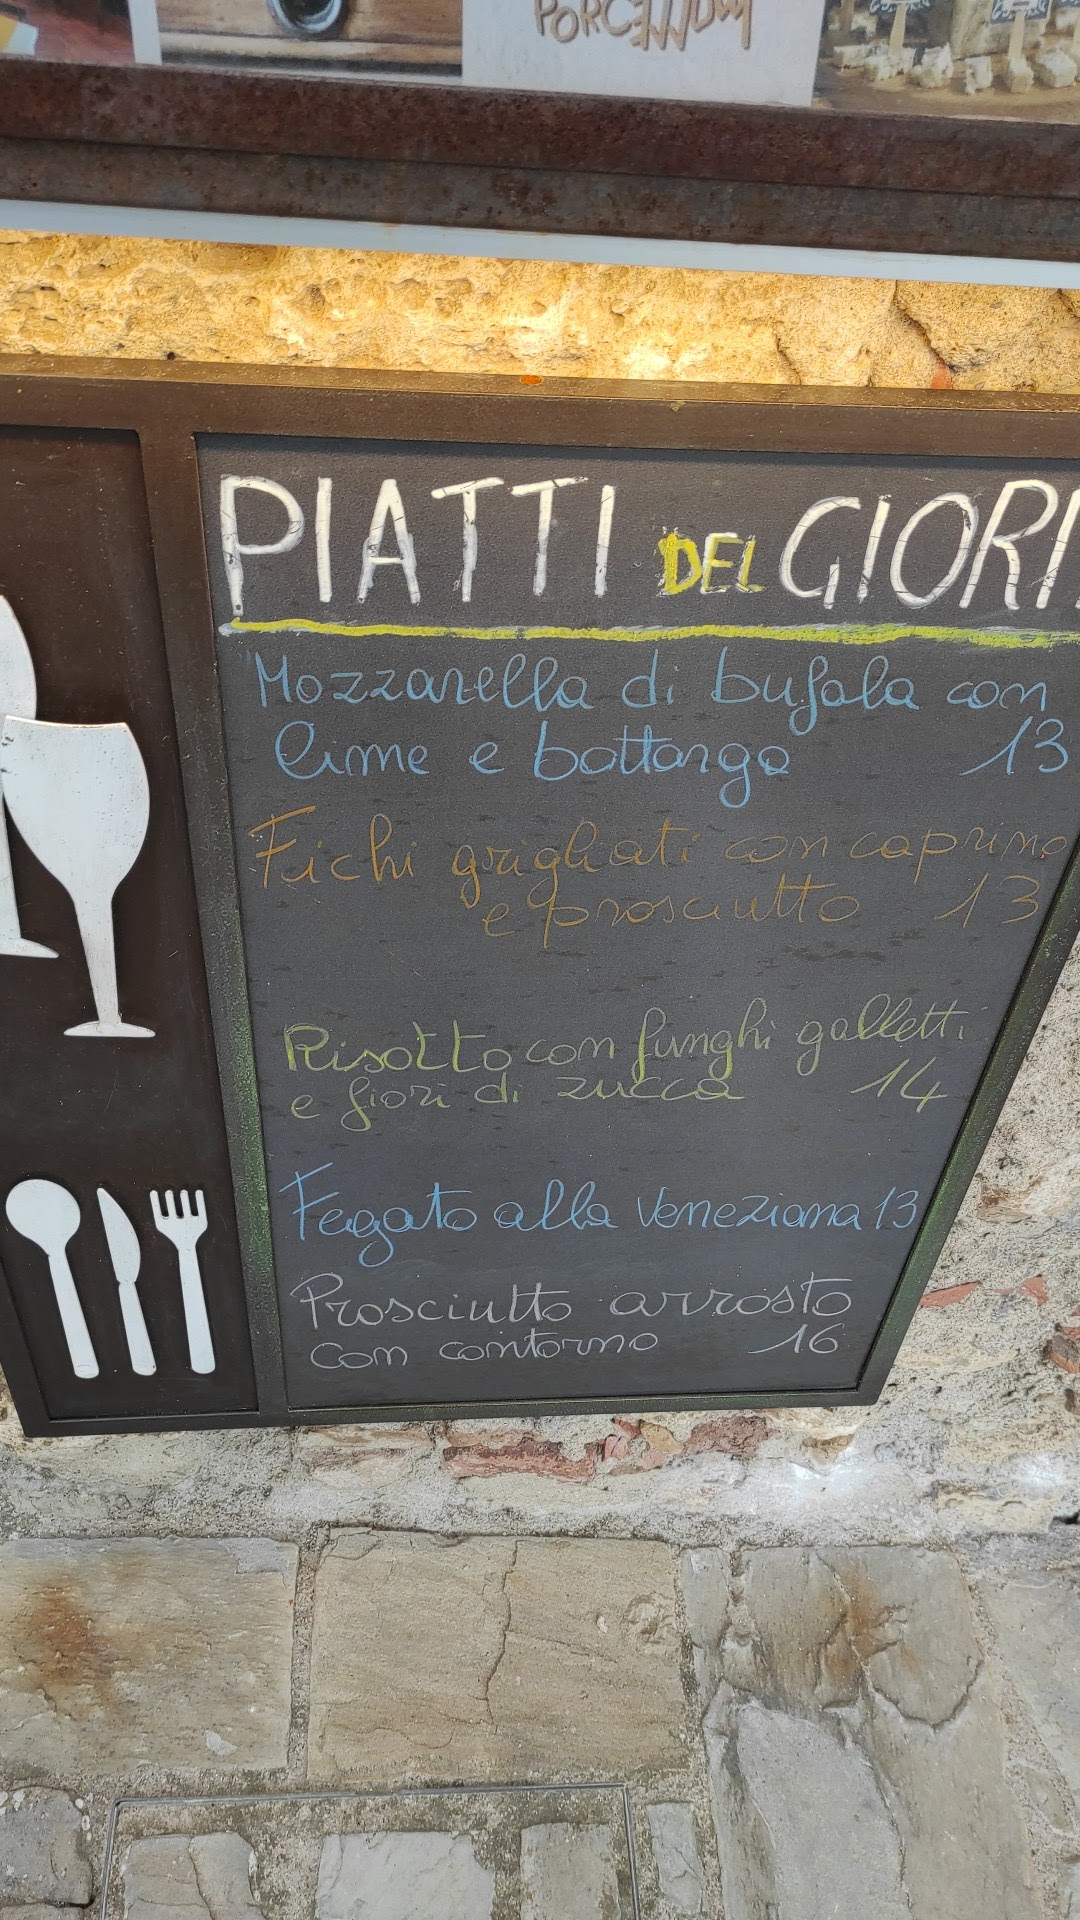 PIATTI DEL GIOR
Mozzarella di bufala con
lime e bottarga 13
Fichi grigliati con caprino
e prosciutto 13
Risotto con funghi galletti
e fiori di zucca 14
Fegato alla Veneziana 13
Prosciutto arrosto
con contorno 16